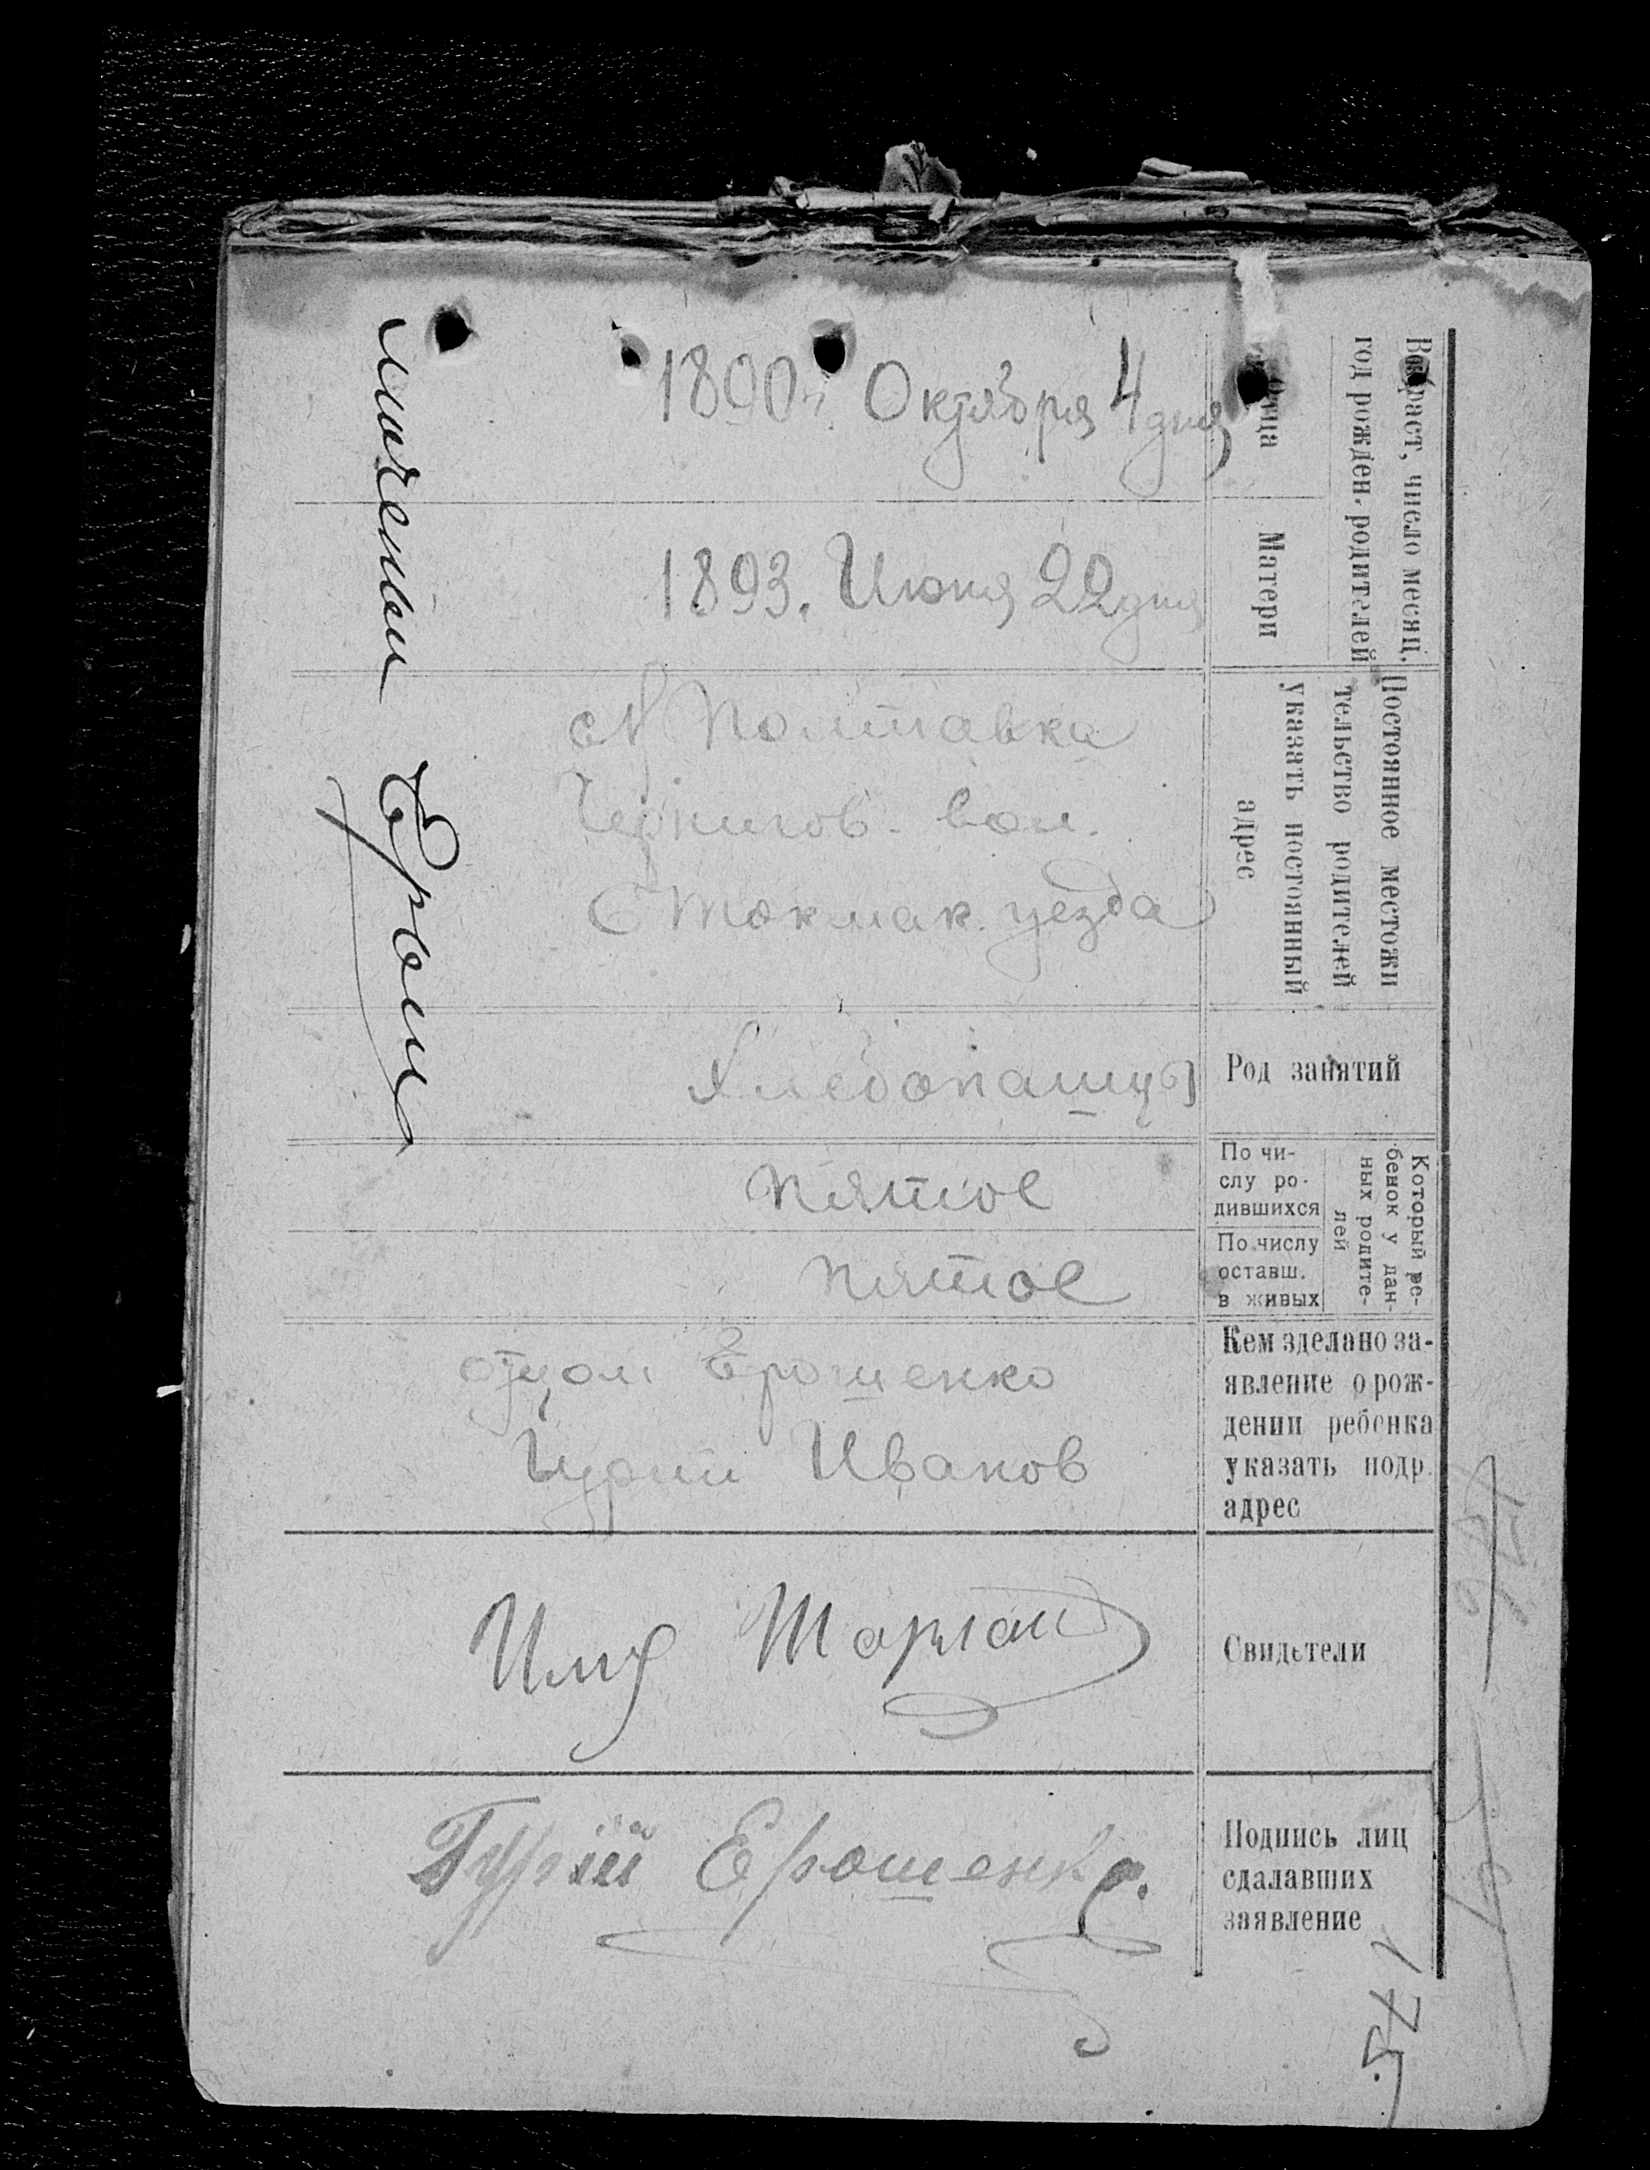 Возраст, число месяц,
год рожден. родителей
Отца
1890 г. Октября 4 дня
Матери
1893. Июня 22 дня
Постоянное местожи
тельство родителей
указать постоянный
адрес
с Н Полтавка
Чернигов. вол.
Б Токмак. уезда
Род занятий
Хлебопашцы
Который ре-
бенок у дан-
ных родите-
лей
По чи-
слу ро-
дившихся
пятое
По числу
оставш.
в живых
пятое
Кем зделано за-
явление о рож-
дении ребенка
указать подр.
адрес
отцом Ерошенко
Гурий Иванов
Свидетели
Подпись лиц
сдалавших
заявление
Гурій Ерошенко.